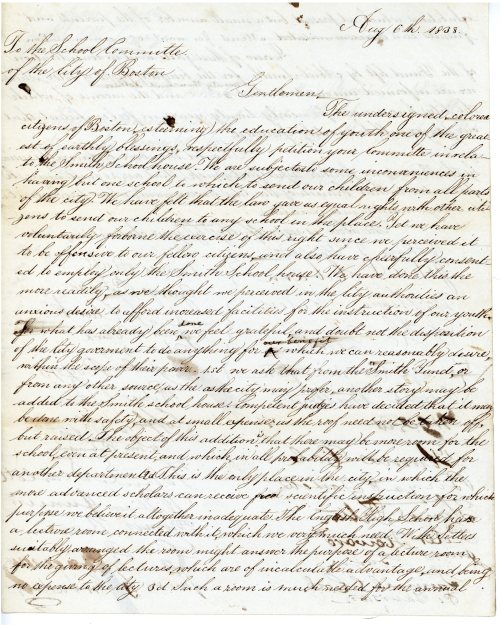 Aug 6th. 1838.
To the School Committe
of the City of Boston
Gentlemen
The undersigned, colored
citizens of Boston, esteeming the education of youth one of the great
est of earthly blessings, respectfully petition your Committe in rela-
to the Smith School house. We are subjected to some inconveniences in
having but one school to which to send our children from all parts
of the city. We have felt that the law gave us equal rights with other citi-
zens to send our children to any school in the place. Yet we have
voluntarily forborne the exercise of this right since we perceived it
to be offensive to our fellow citizens, and also have cheerfully consent
ed to employ only the Smith School house. We have done this the
more readily, as we thought we perceived in the city authorities an
anxious desire to afford increased facilities for the instruction of our youth.
for what has already been done we feel grateful, and doubt not the disposition
of the city goverment to do anything for our benefit which we can reasonably desire,
within the scope of their power. 1st we ask that from the Smith Fund, or
from any other source, as the city may prefer, another story may be
added to the Smith school house. Competent judges have decided that it may
be done with safety, and at small expense, as the roof need not be taken off,
but raised. The object of this addition is that there may be more room for the
school, even at present, and which, in all probability will be required for
another department. 2d This is the only place in the city in which the
more advanced scholars can receive scientific instruction for which
purpose we believe it altogether inadequate. The High School has
a lecture room, connected with it, which we very much need. If the
suitably arranged the room might answer the purpose of a lecture room
for the giving of lectures, which are of incalculable advantage, and being
no expense to the city. 3d Such a room is much needed for the annual